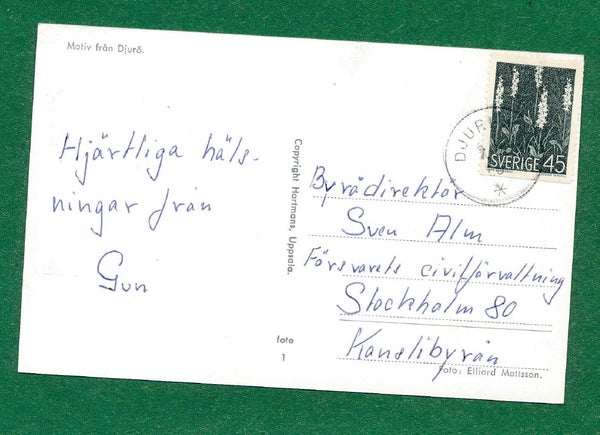 Motiv från Djurö.
Hjärtliga häls-
ningar från
Gun
Copyright Hartmans, Uppsala.
foto
1
DJUR
SVERIGE 45
Byrådirektör
Sven Alm
Försvarets civilförvaltning
Stockholm 80
Kanslibyrån
Foto: Elliord Matisson.